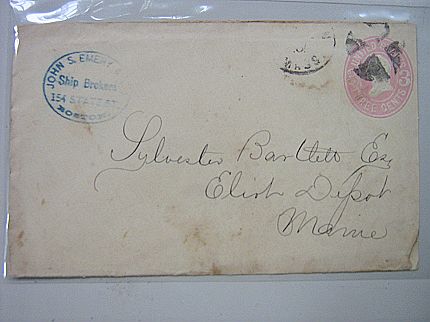 JOHN S. EMERY &
Ship Brokers
154 STATE ST.
BOSTON.
MASS
THREE CENTS
Sylvester Bartlett Esq
Eliot Depot
Maine